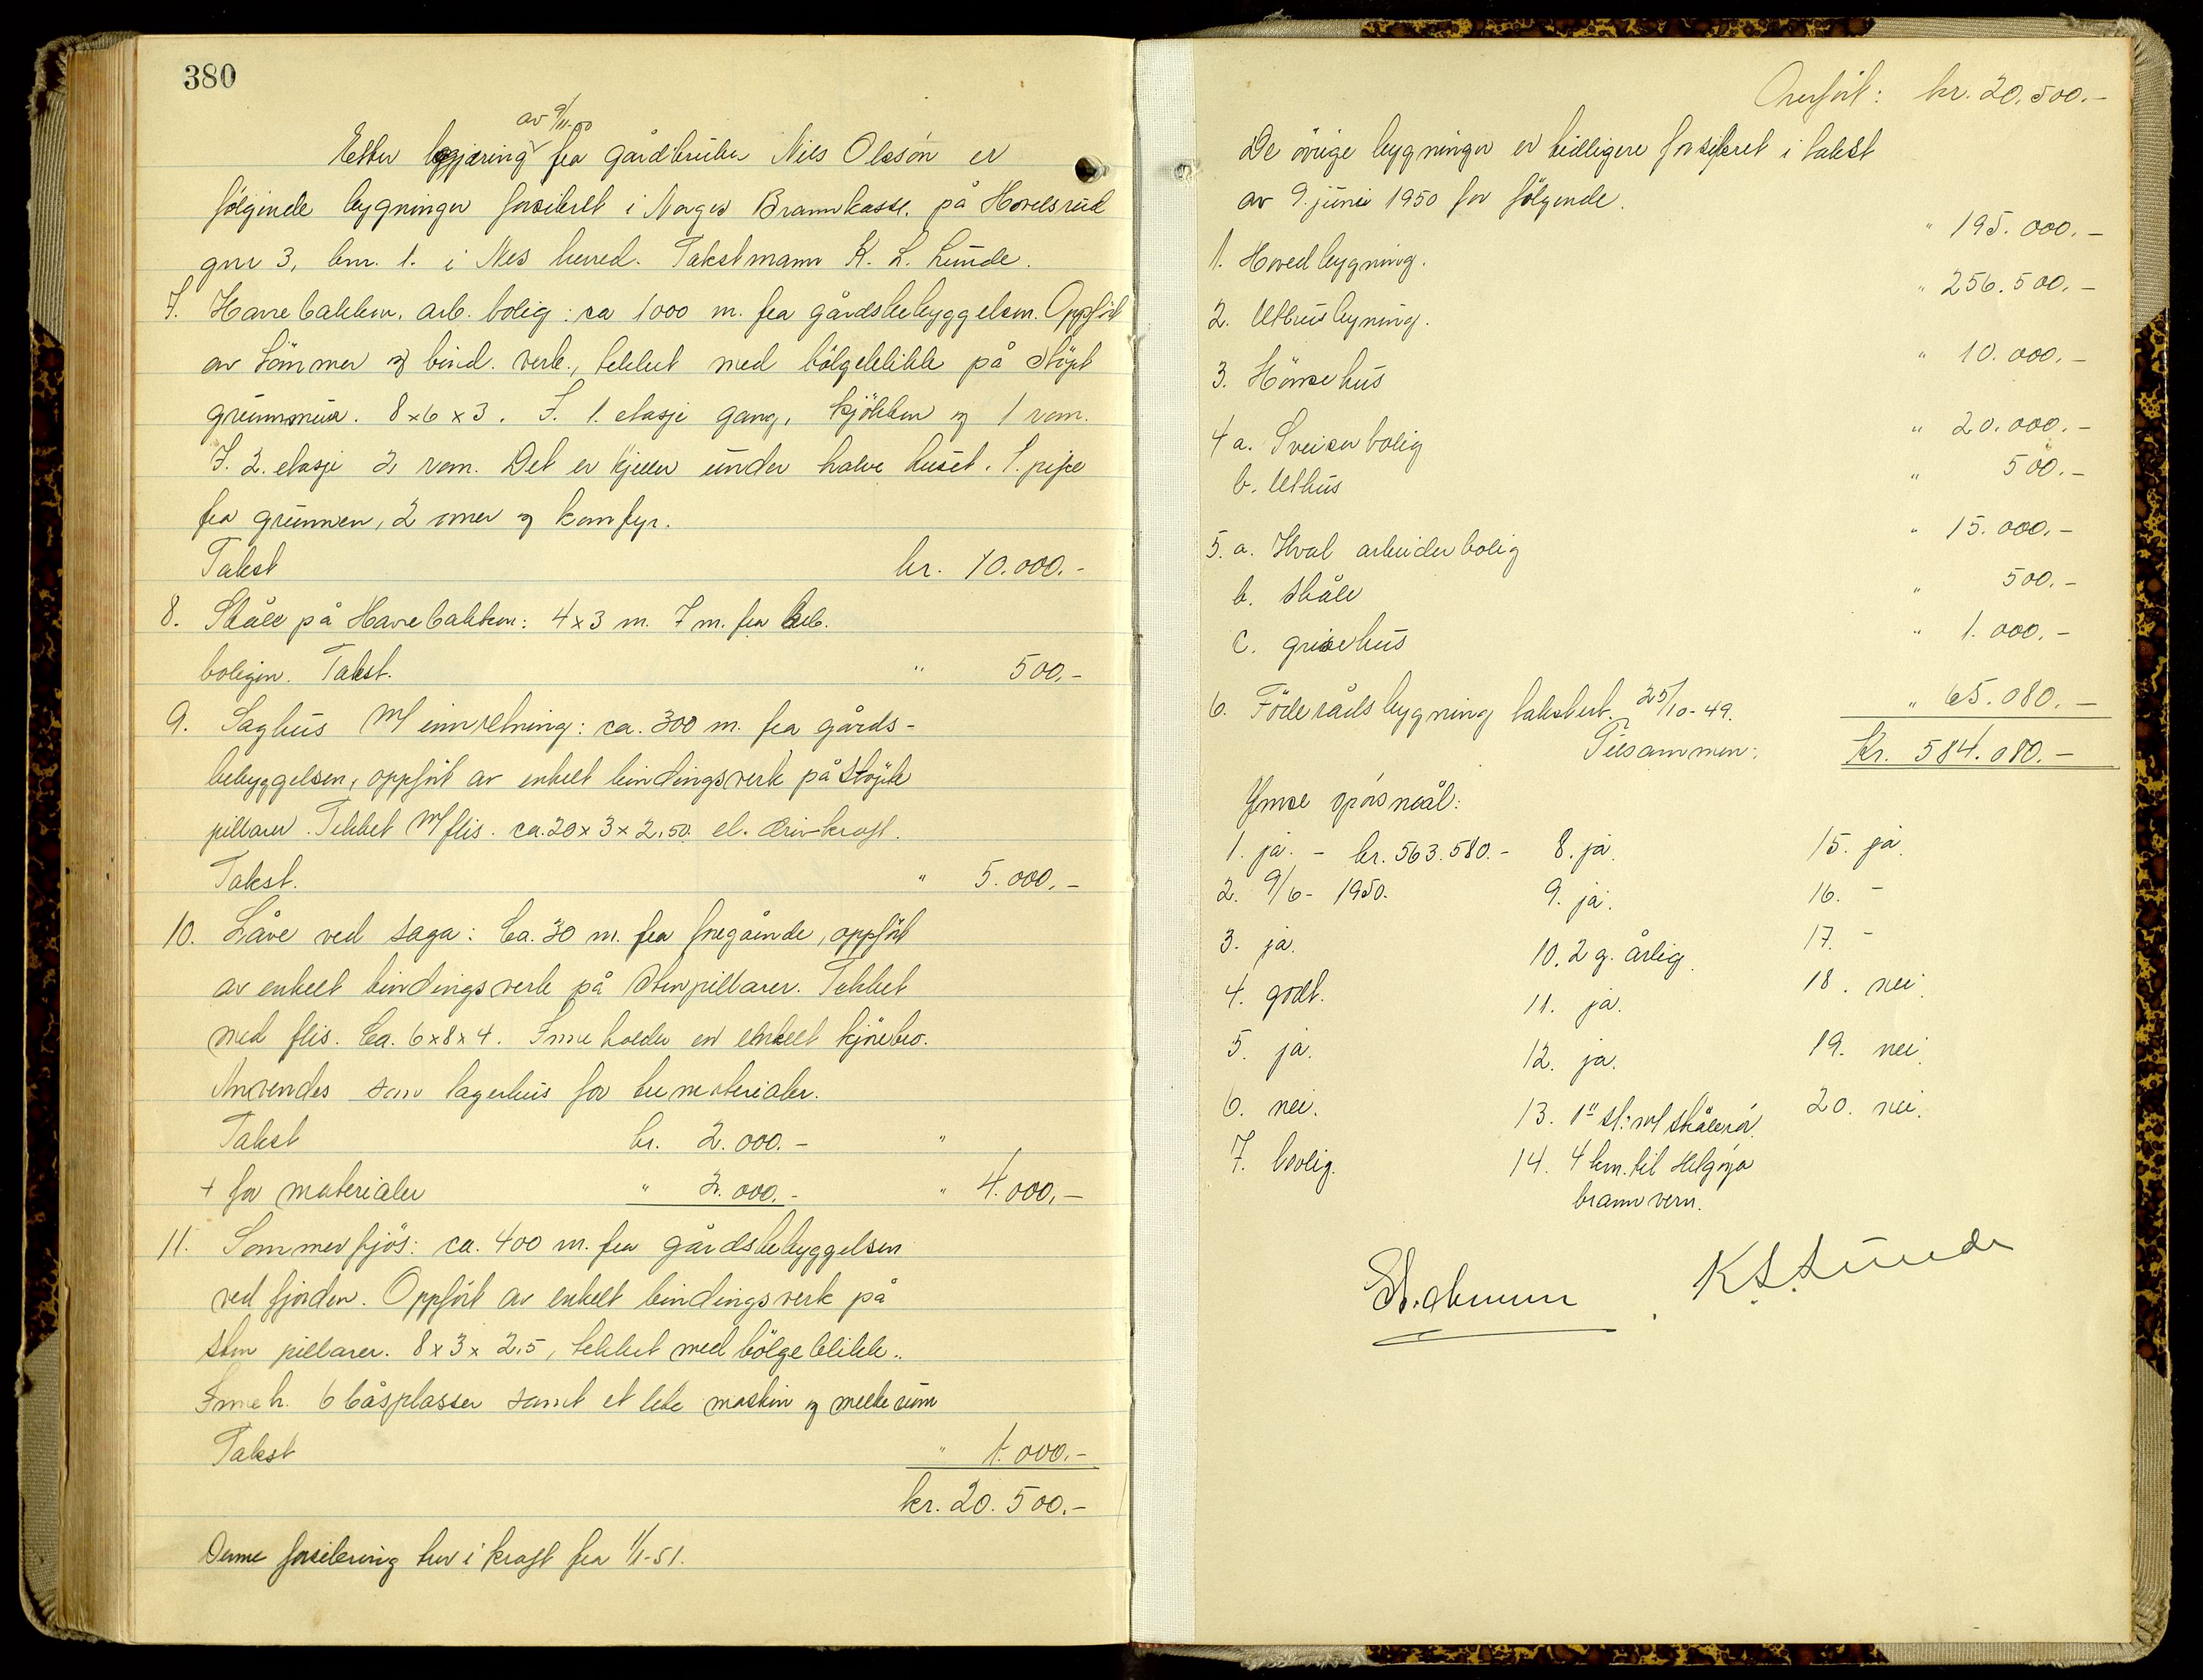 380
av 9/11-50
Etter begjæring fra gårdbruker Nils Olsson er
følgende bygninger forsikret i Norges Brannkasse, på Hovelsrud
gnr 3, bnr. 1. i Nes herred. Takstmann K. L. Lunde.
7. Harrebakken, arb. bolig: ca 1000 m. fra gårdsbebyggelsen. Oppført
av tømmer og bind. verk., tekket med bølgeblikk på støpt
grunnmur. 8x6x3. I. 1. etasje gang, kjøkken og 1 rom.
I. 2. etasje 2 rom. Det er kjeller under halve huset. 1. pipe
fra grunnen, 2 ovner og komfyr.
Takst kr. 10.000.-
8. Skåle på Harrebakken: 4x3 m. 7 m. fra arb.
boligen. Takst. " 500,-
9. Saghus m/ innretning: ca. 300 m. fra gårds-
bebyggelsen, oppført av enkelt bindingsverk på støpte
pillarer. Tekket m/ flis. ca. 20x3x2,50. el. drivkraft.
Takst. " 5.000,-
10. Låve ved saga: Ca. 30 m. fra foregående, oppført
av enkelt bindingsverk på stenpillarer. Tekket
med flis. Ca. 6x8x4. Inneholder en enkelt kjørebro.
Anvendes som lagerhus for trematerialer.
Takst kr. 2.000.- "
+ for materialer " 2.000.- " 4.000,-
11. Sommerfjøs: ca. 400 m. fra gårdsbebyggelsen
ved fjorden. Oppført av enkelt bindingsverk på
sten pillarer. 8x3x2,5, tekket med bølgeblikk.
Inneh. 6 båsplasser samt et lite maskin og melkerum
Takst " 1.000.-
kr. 20.500.-
Denne forsikring trer i kraft fra 1/1-51.
Overført: kr. 20.500.-
De øvrige bygninger er tidligere forsikret i takst
av 9. juni 1950 for følgende.
1. Hovedbygning. " 195.000.-
2. Uthusbygning. " 256.500.-
3. Hønsehus " 10.000.-
4 a. Sveiserbolig " 20.000.-
b. Uthus " 500.-
5. a. Hval arbeiderbolig " 15.000.-
b. skåle " 500.-
c. grisehus " 1.000.-
6. Føderådsbygning takstert 25/10-49. " 65.080.-
Tilsammen: Kr. 584.080.-
Ymse spørsmål:
1. ja. - kr. 563.580.- 8. ja. 15. ja.
2. 9/6- 1950. 9. ja. 16. -
3. ja. 10. 2 g. årlig. 17. -
4. godt. 11. ja. 18. nei.
5. ja. 12. ja. 19. nei.
6. nei. 13. 1" st. m/ stålrør. 20. nei.
7. lovlig. 14. 4 km. til Helgøya
brannvern.
K L Lunde